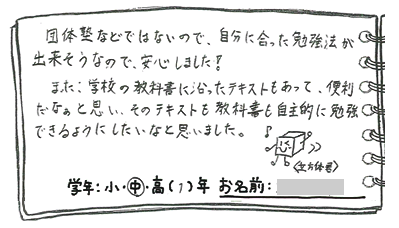 団体塾などではないので、自分に合った勉強法が
出来そうなので、安心しました！
また、学校の教科書に沿ったテキストもあって、便利
だなぁと思い、そのテキストも教科書も自主的に勉強
できるようにしたいなと思いました。
〈立方体君〉
学年：小・中・高（1）年 お名前：